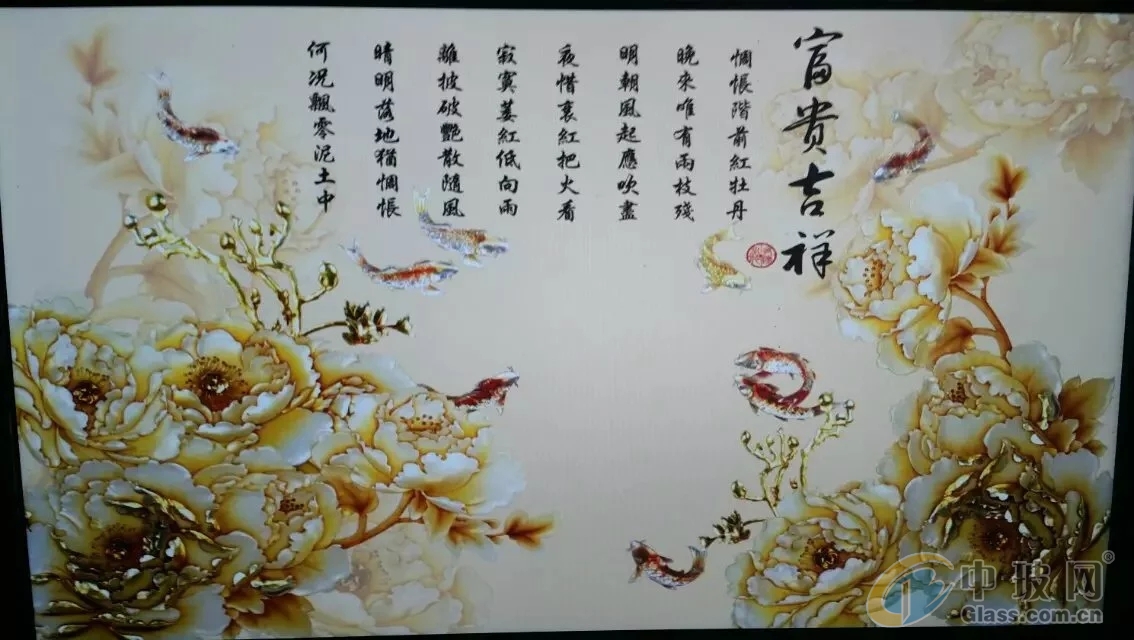 富贵吉祥
惆悵階前紅牡丹
晚來唯有兩枝殘
明朝風起應吹盡
夜惜衰紅把火看
寂寞萎紅低向雨
離披破艷散隨風
晴明落地猶惆悵
何況飄零泥土中
中玻网®
Glass.com.cn